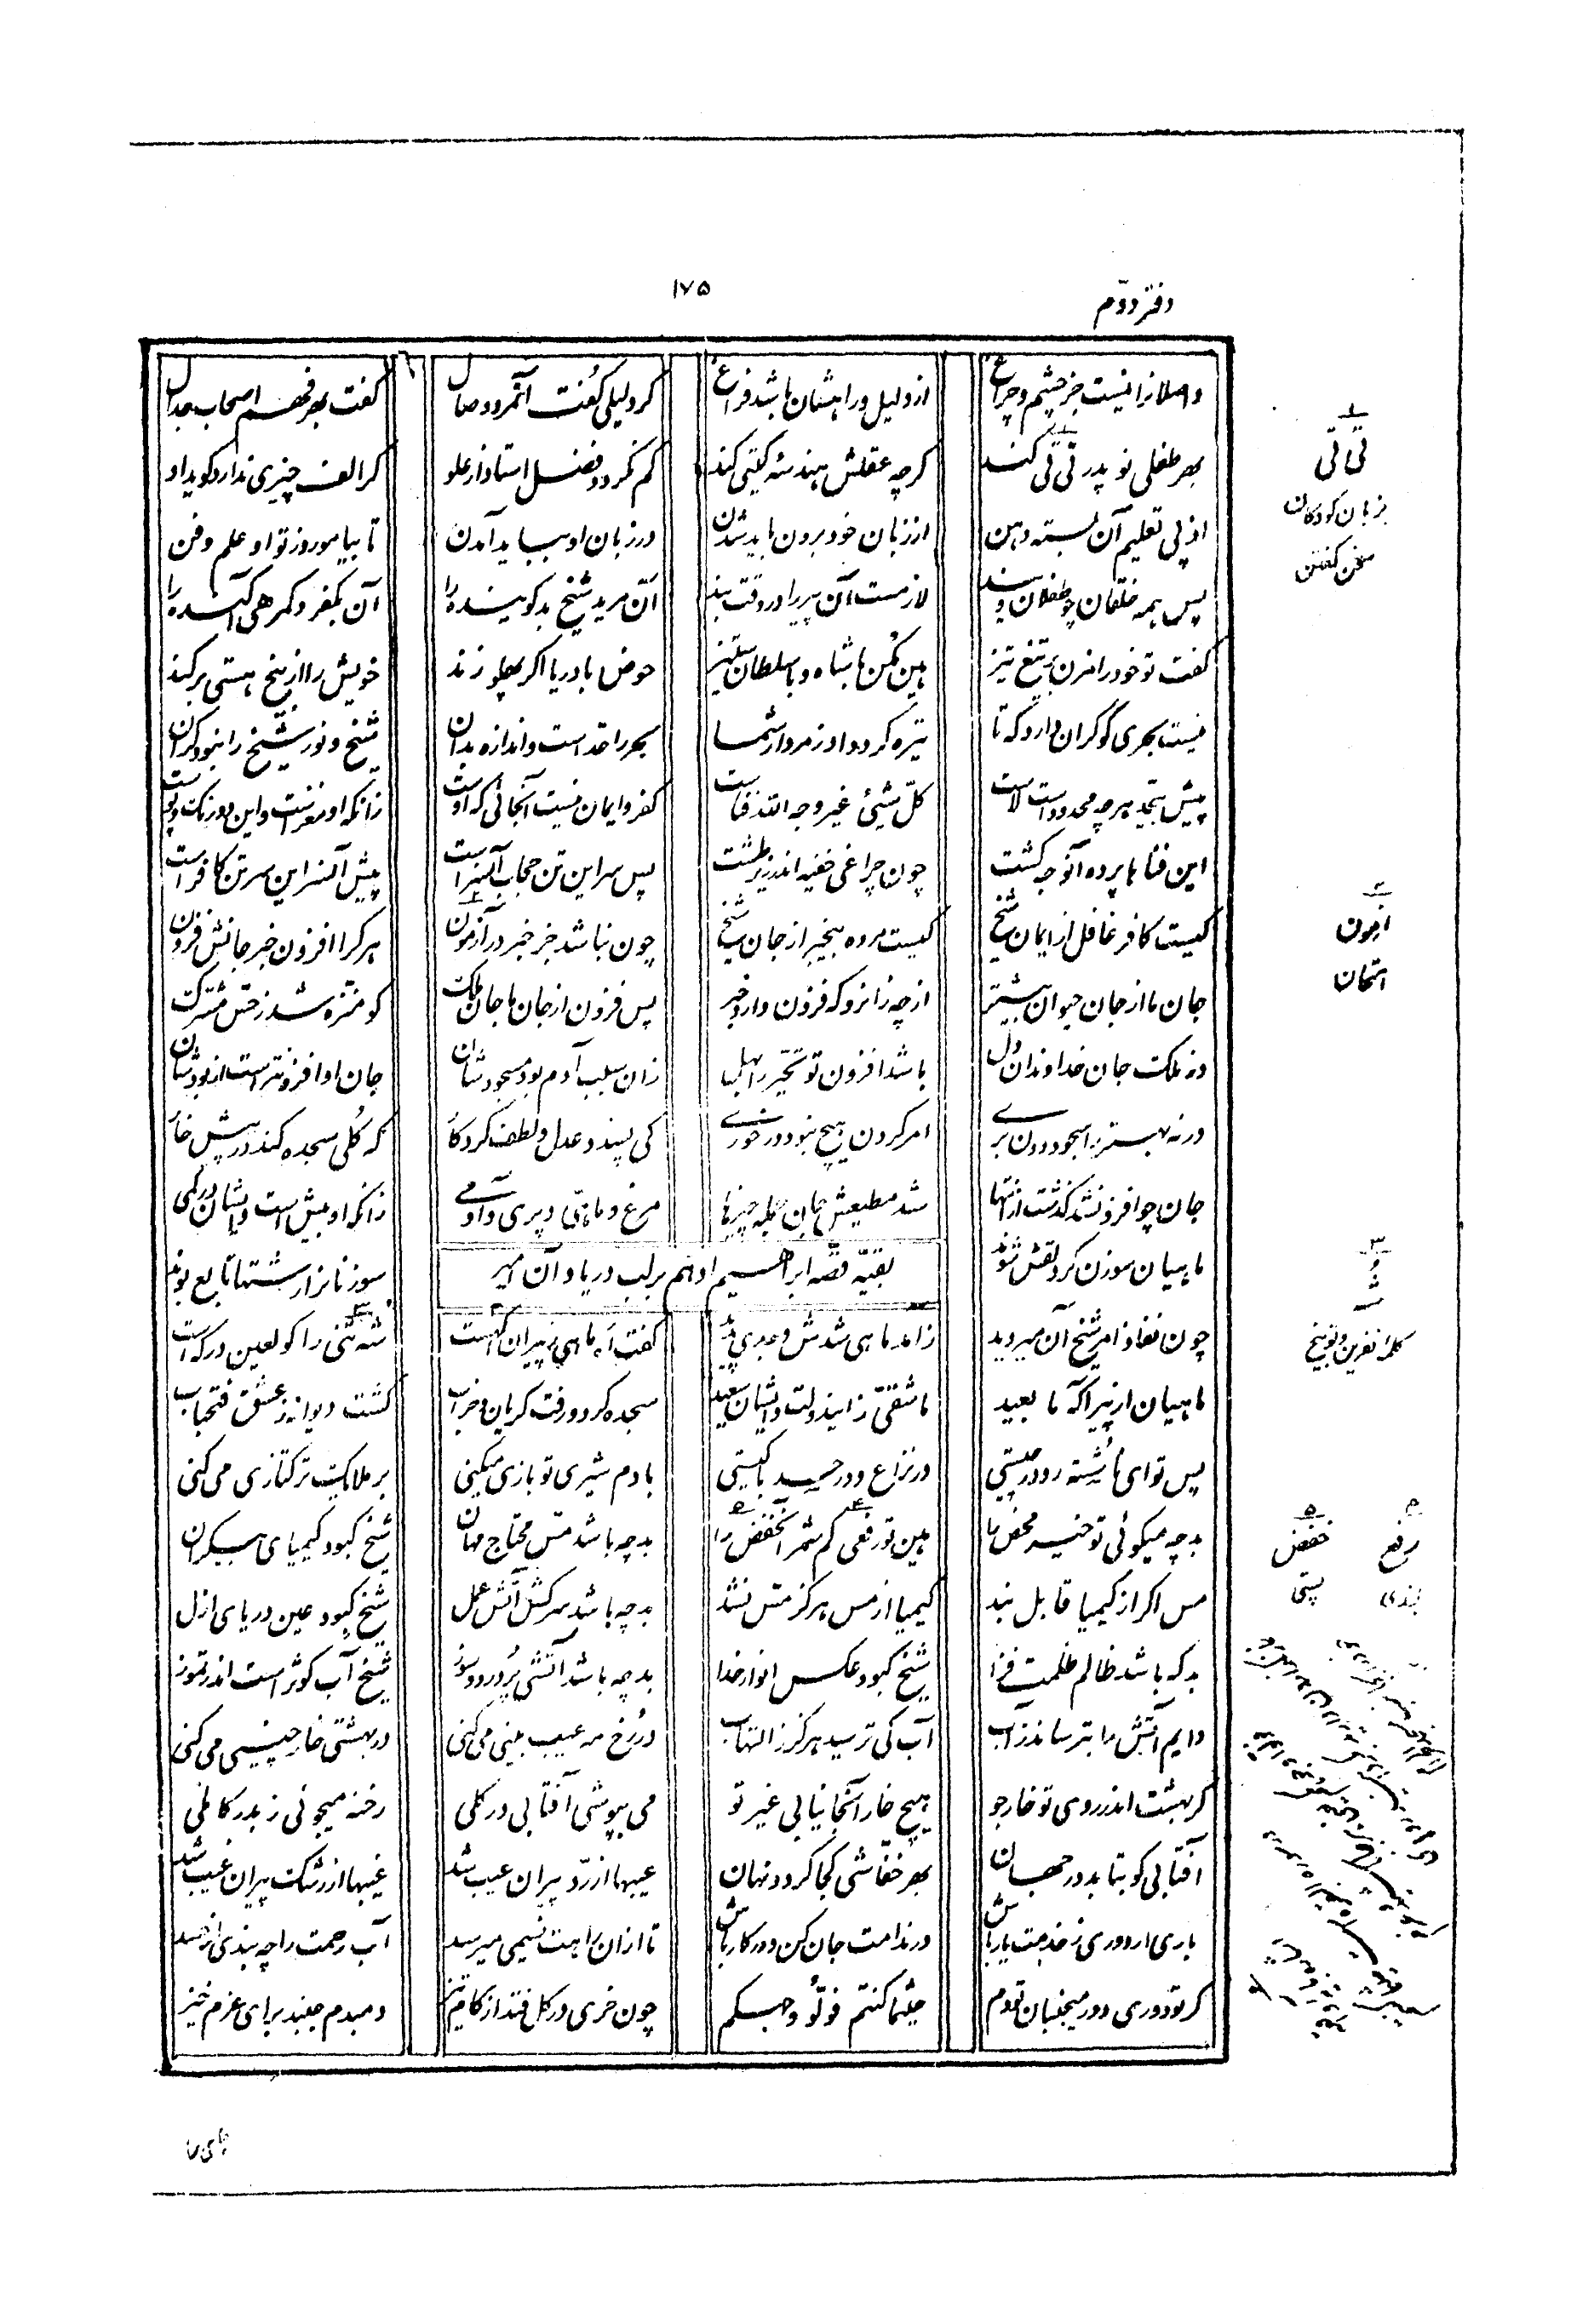 ۱۷۵
دفتر دوّم
واصلانرا نیست جز چشم و چراغ از دلیل و راهشان باشد فراغ گر دلیلی گفت آنمرد وصال گفت بهر فهم اصحاب جدال
بهر طفلی نو پدر تی تی کند گرچه عقلش هندسه گیتی کند کم نگردد فضل استاد از علو گر الف چیزی ندارد گوید او
از پی تعلیم آن بسته دهن از زبان خود برون باید شدن در زبان او بباید آمدن تا بیاموزد ز تو او علم و فن
پس همه خلقان چو طفلان ویند لازمست آن پیر را در وقت پند آن مرید شیخ بد گوینده را آن بکفر و گمرهی آکنده را
گفت تو خود را مزن بر تیغ تیز هین مکن با شاه و با سلطان ستیز حوض با دریا اگر پهلو زند خویش را از بیخ هستی برکند
نیست بحری کو کران دارد که تا تیره گردد او ز مردار شما بحر را حد است و اندازه بدان شیخ و نور شیخ را نبود کران
پیش بیحد هرچه محدود است لاست کلّ شیئ غیر وجه الله فناست کفر و ایمان نیست آنجائی که اوست زانکه او مغز است و این دو رنگ و پوست
این فناها پرده آنوجه گشت چون چراغی خفیه اندر زیر طشت پس سر این تن حجاب آنسر است پیش آنسر این سر تن کافر است
کیست کافر غافل از ایمان شیخ کیست مرده بیخبر از جان شیخ چون نباشد جز خبر در آزمون هر کرا افزون خبر جانش فزون
جان ما از جان حیوان بیشتر از چه زانرو که فزون دارد خبر پس فزون از جان ما جان ملک کو منزّه شد ز حسّ مشترک
وز ملک جان خداوندان دل باشد افزون تو تحیّر را بهل زان سبب آدم بود مسجودشان جان او افزونتر است از بودشان
ورنه بهتر را سجود دون بری امر کردن هیچ نبود در خوری کی پسندد عدل و لطف کردگار که گلی سجده کند در پیش خار
جان چو افزون شد گذشت از انتها شد مطیعش جان جمله چیزها مرغ و ماهی و پری و آدمی زانکه او بیش است و ایشان در کمی
ماهیان سوزن گر دلقش شوند سوزنانرا رشتها تابع بوند
بقیّه قصّه ابراهیم ادهم بر لب دریا و آن امیر
چون نفاذ امر شیخ آن میر دید زامد ماهی شدش وجدی پدید گفت اه ماهی ز پیران آگهست شه تنی را کو لعین درگه است
ماهیان از پیر آگه ما بعید ما شقیّ زایندولت و ایشان سعید سجده کرد و رفت گریان و خراب گشت دیوانه ز عشق فتحباب
پس تو ای ناشسته رو در چیستی در نزاع و در حسد با کیستی با دم شیری تو بازی میکنی بر ملایک ترکتازی می کنی
بد چه میگوئی تو خیر محض را هین تو رفعی کم شمر آنخفض را بد چه باشد مسّ محتاج مهان شیخ کبود کیمیای بیکران
مس اگر از کیمیا قابل نبد کیمیا از مس هرگز مس نشد بد چه باشد سرکش آتش عمل شیخ کبود عین دریای ازل
بد که باشد ظالم ظلمت فزا شیخ کبود عکس انوار خدا بد چه باشد آتشی پر دود و سوز شیخ آب کوثر است اندر تموز
دایم آتش را بترسانند ز آب آب کی ترسید هرگز ز التهاب در رخ مه عیب بینی می کنی در بهشتی خار چینی می کنی
گر بهشت اندر روی تو خارجو هیچ خار آنجا نیابی غیر تو می بپوشی آفتابی در گلی رخنه میجوئی ز بدر کاملی
آفتابی کو بتابد در جهان بهر خفّاشی کجا گردد نهان عیبها از ردّ پیران عیب شد غیبها از رشک پیران غیب شد
باری ار دوری ز خدمت یار باش در ندامت جان کن و در کار باش تا از آن راهت نسیمی میرسد آب رحمت را چه بندی از حسد
گر تو دوری دور میجنبان تو دم حیثما کنتم فولّوا وجهکم چون خری در گل فتد از گام تیز دمبدم جنبد برای عزم خیز
۱
تی تی
بزبان کودکان
سخن گفتن
۲
آزمون
امتحان
۳
کلمه نفرین و توبیخ
رفع خفض
بلندی پستی